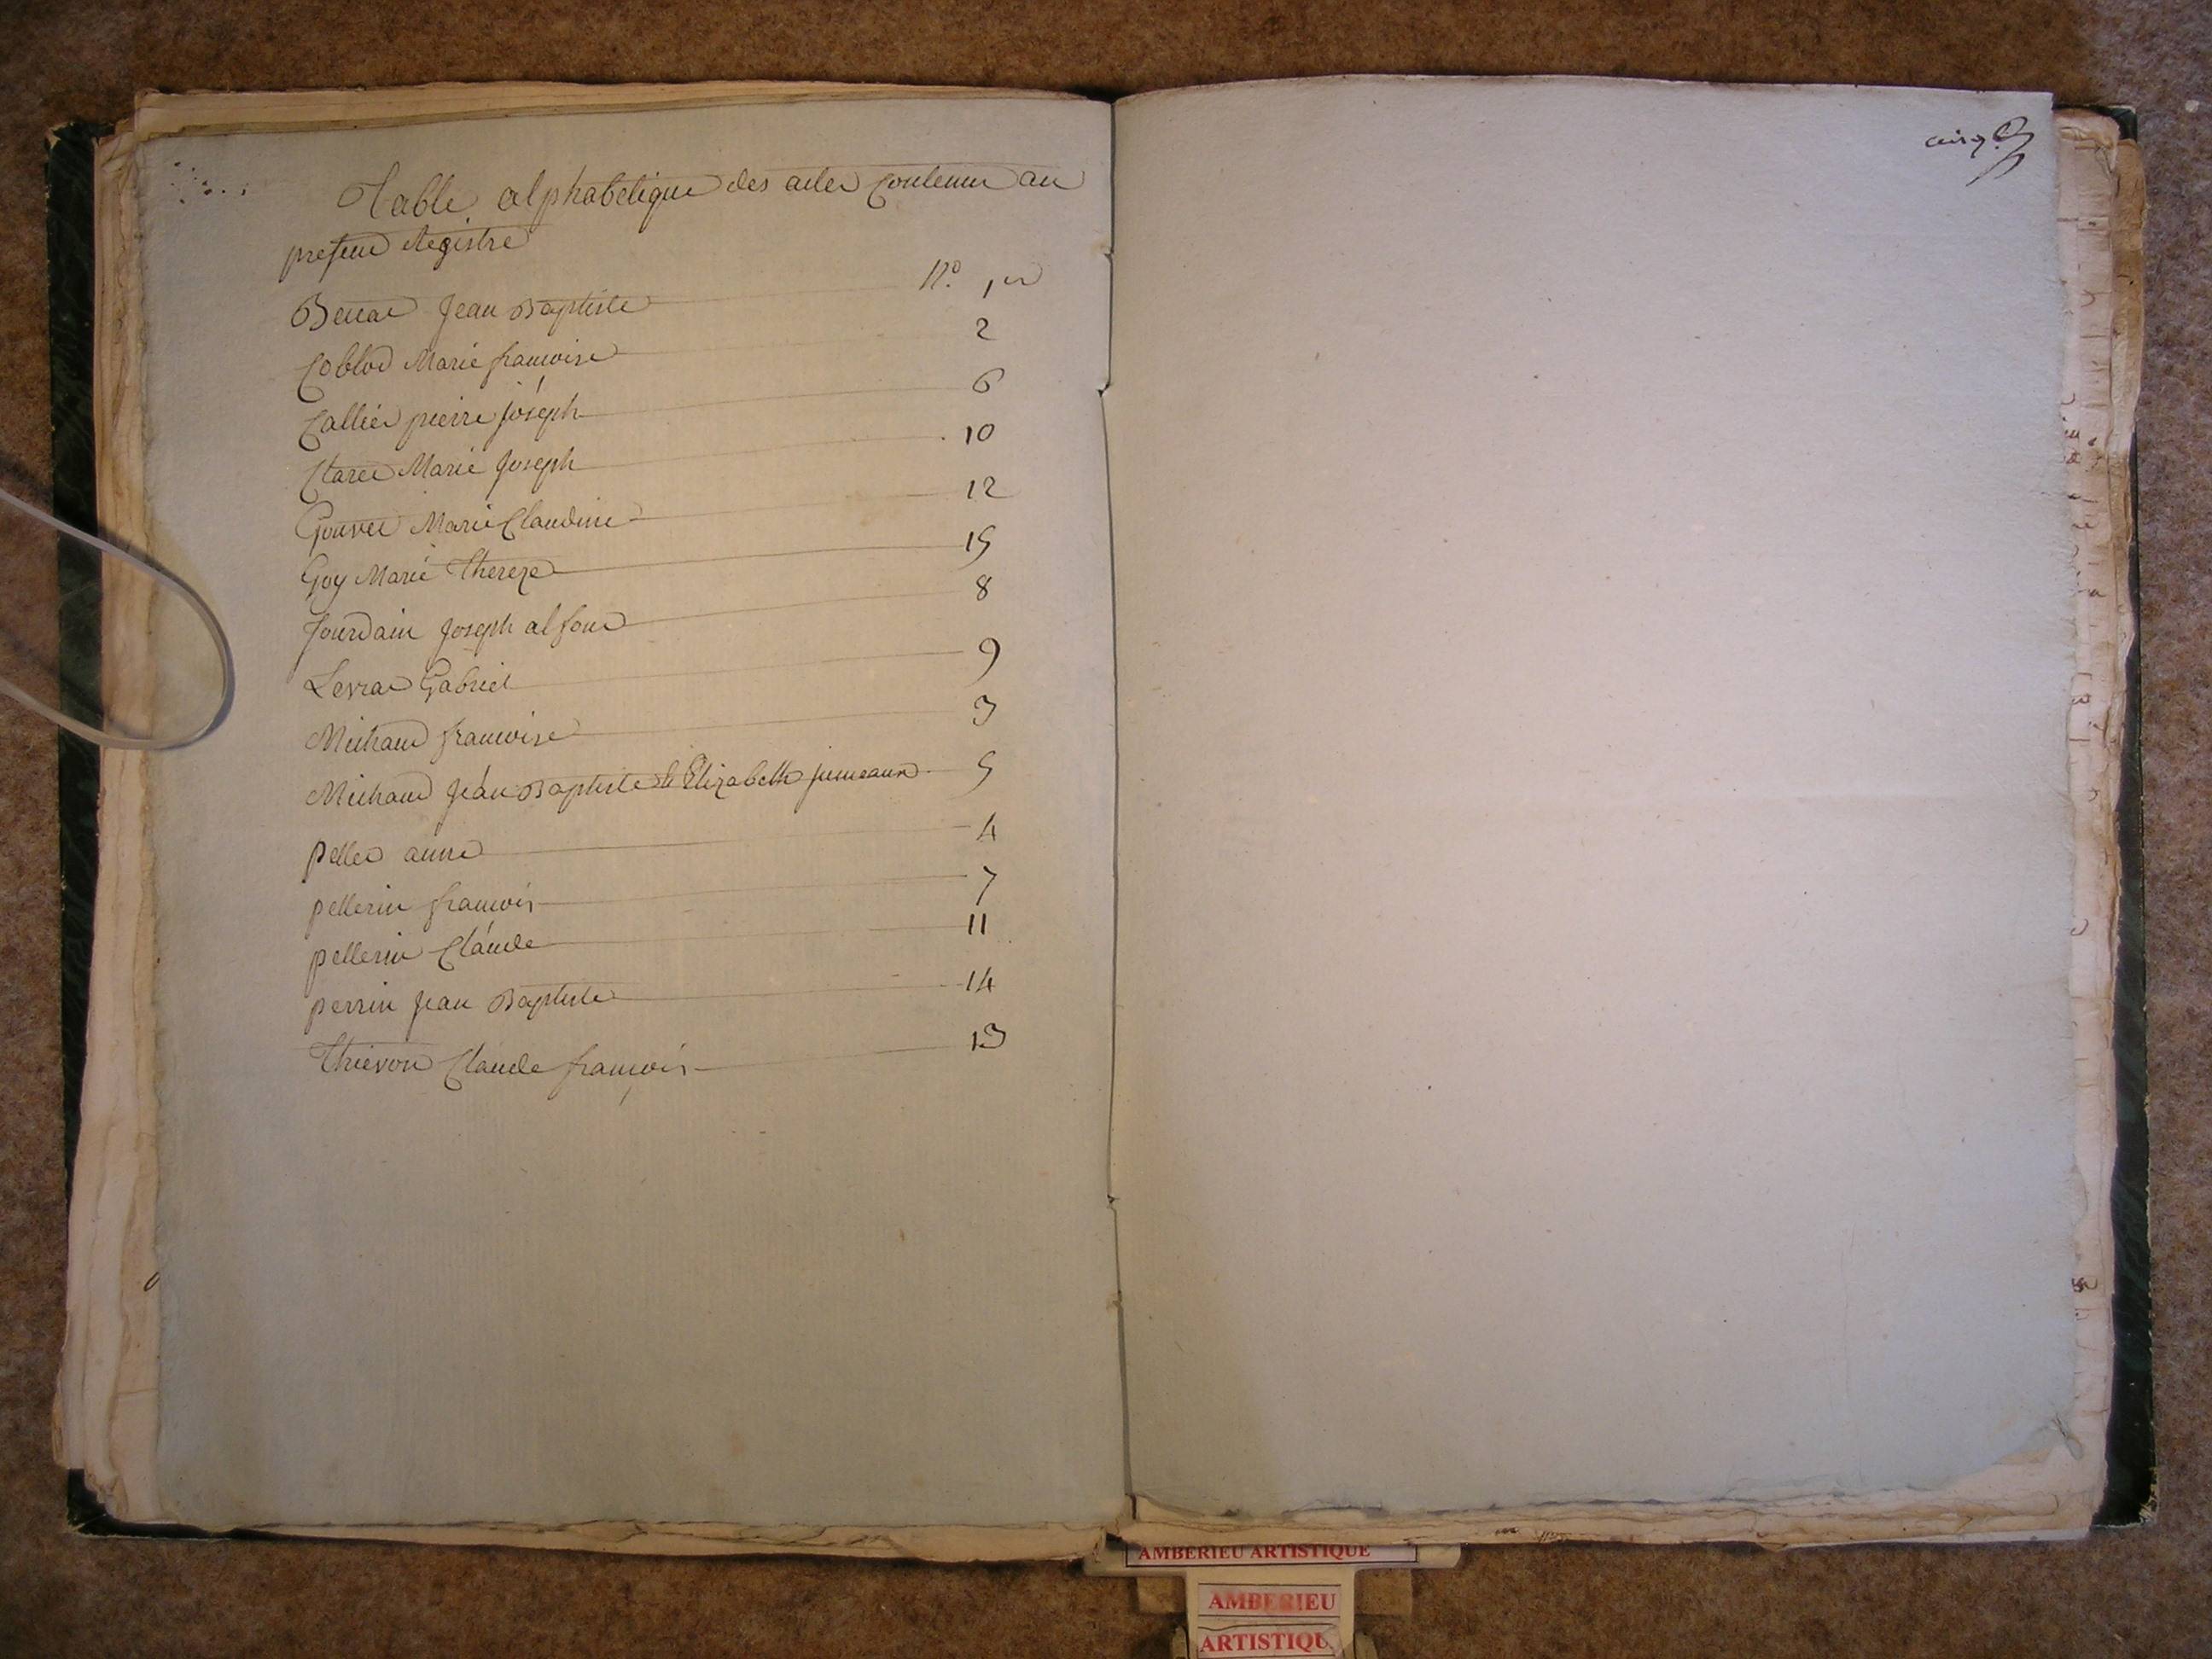 Table alphabetique des actes contenue au
present Registre
Jean Baptiste N.o 1er
Coblod Marie francoise 2
Callier pierre joseph 6
Claret Marie Joseph 10
Gouvet Marie Claudine 12
Goy Marie Thereze 15
Jourdain Joseph alfond 8
Levrat Gabriel 9
Michaud francoise 3
Michaud Jean Baptiste & Elizabeth jumeaux 5
pellet anne 4
pellerin francois 7
pellerin Claude 11
perrin Jean Baptiste 14
Thievon Claude françois 13
cinq
AMBERIEU ARTISTIQUE
AMBERIEU
ARTISTIQU